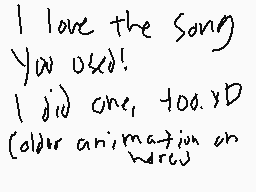 I love the song
You used!
I did one, too. XD
(older animation on